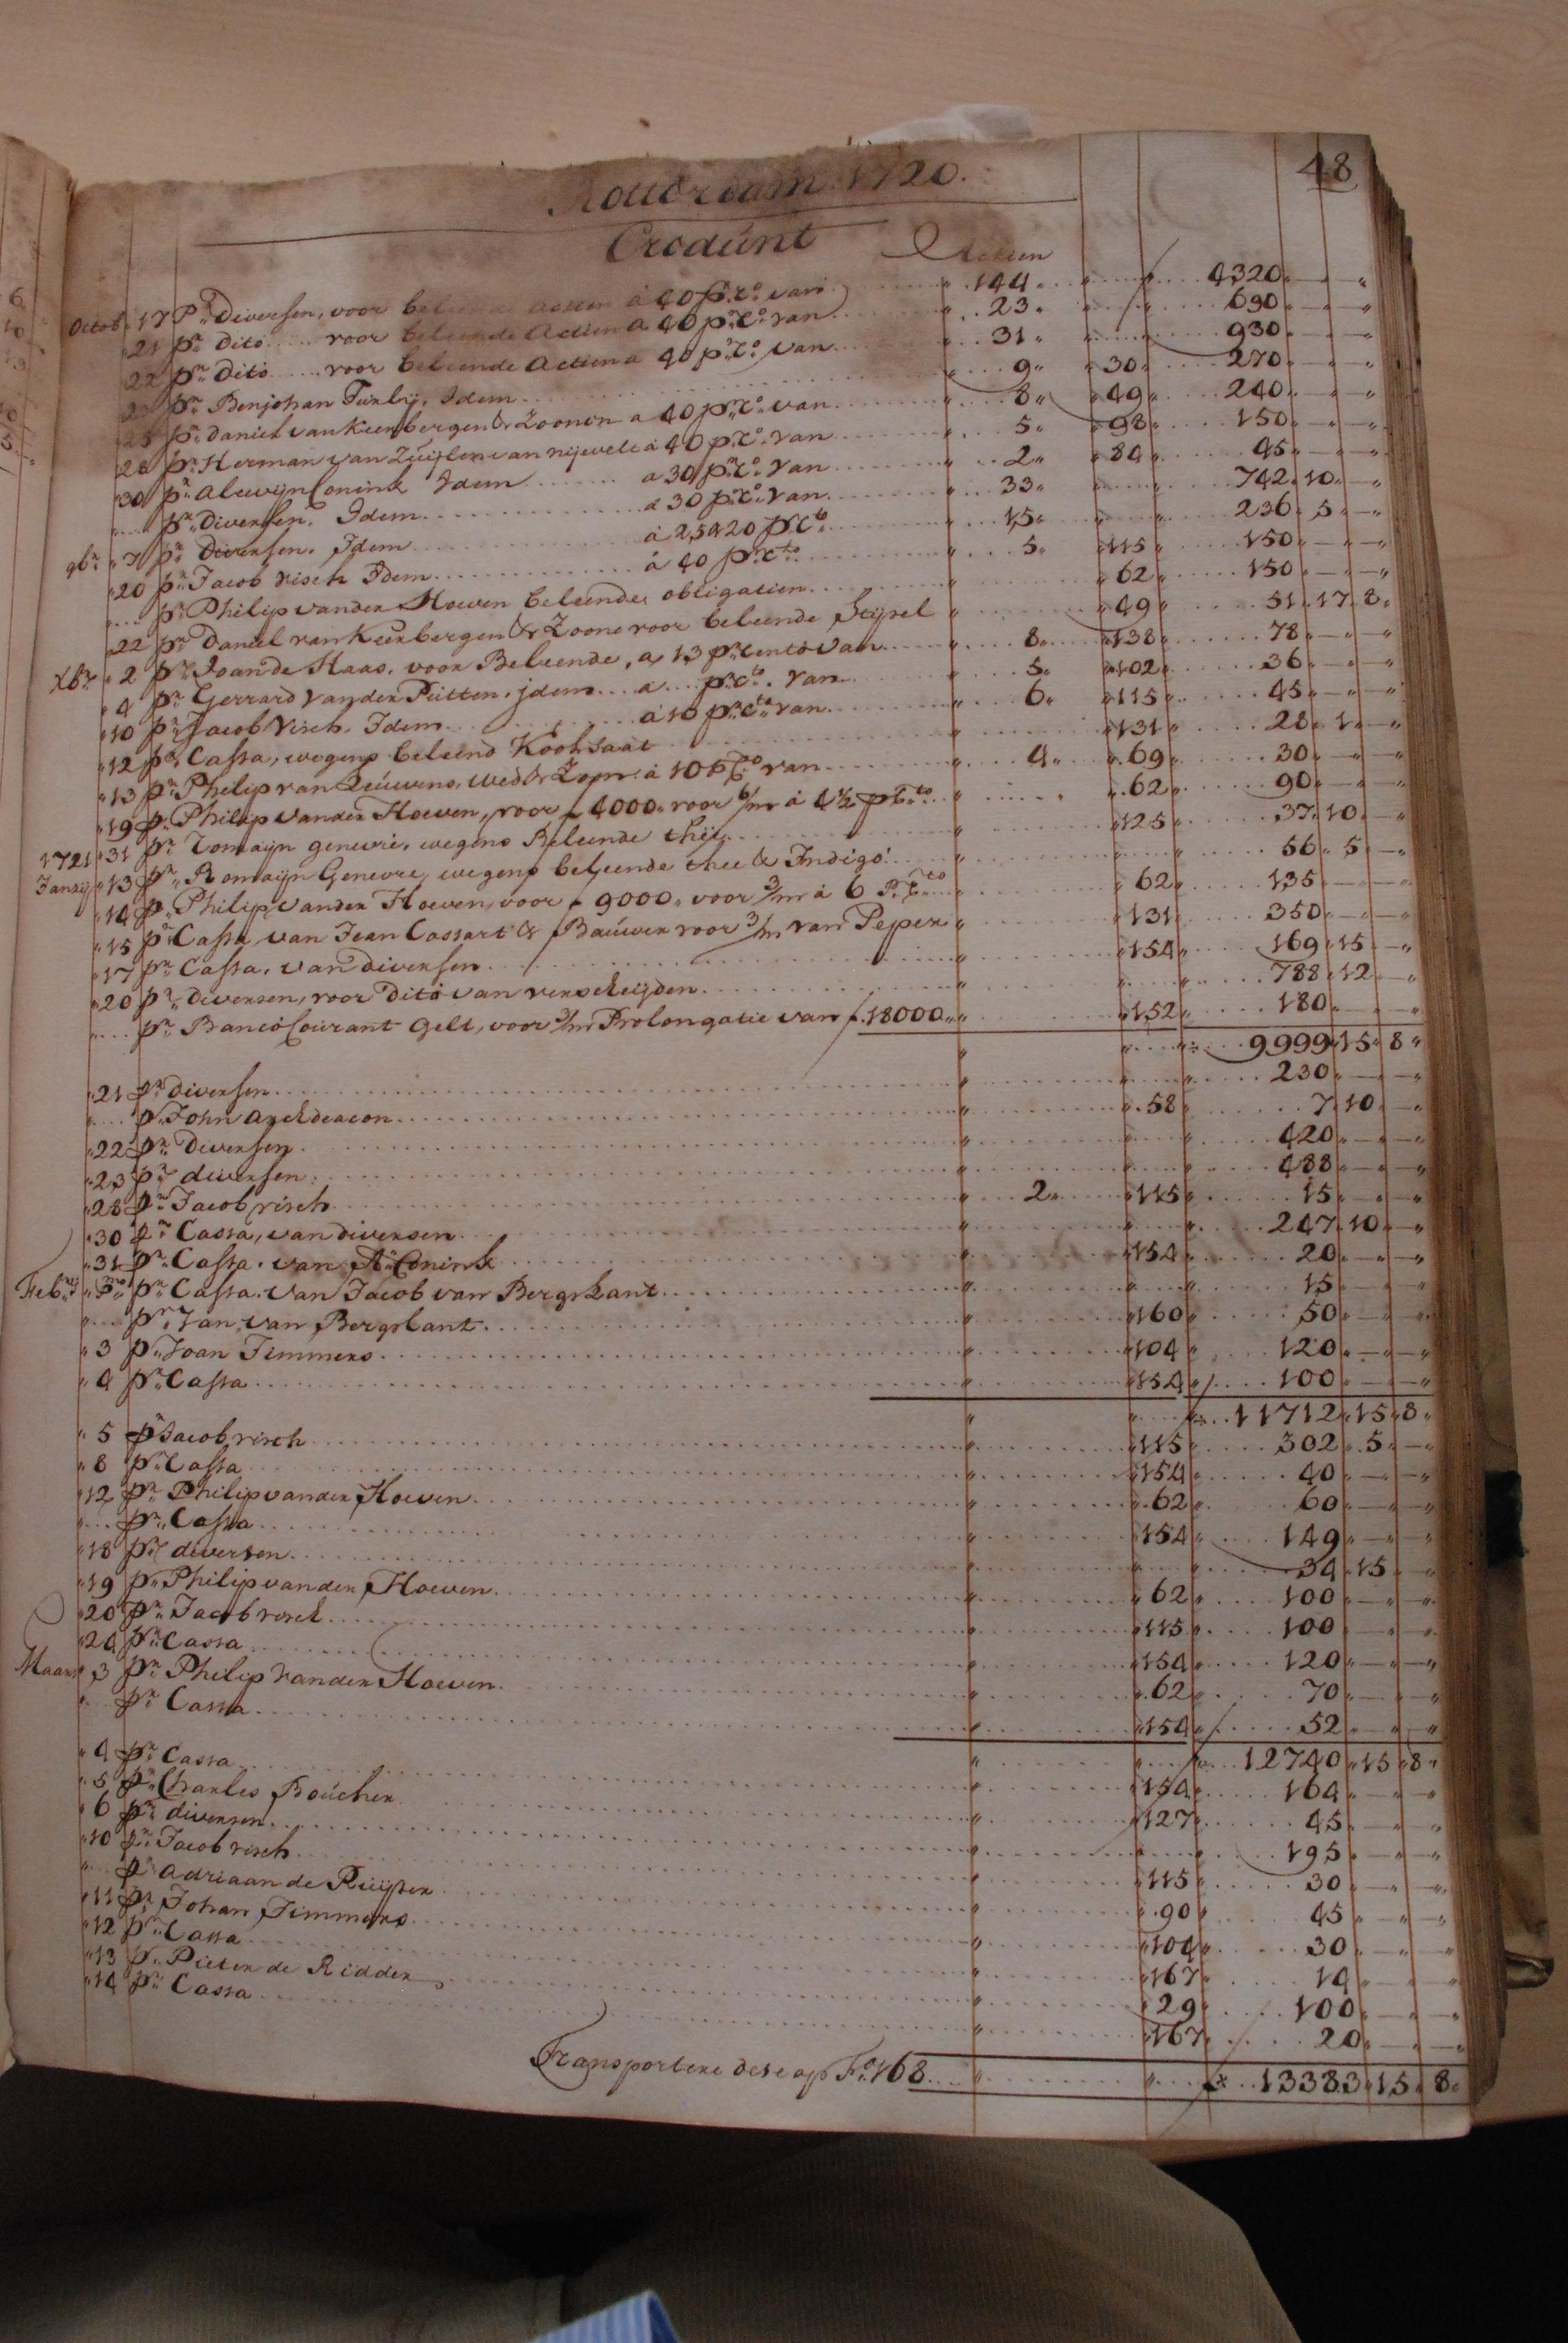 48
Rotterdam 1720.
Credunt Actien
Octob. 17 Pr. Diversen, voor beleende actien à 40 pr. Co. van 144 4320
21 pr. Dito voor beleende Actien a 40 pr. Co. van 23 690
22 pr. Dito voor beleende actien a 40 pr. Co. van 31 930
pr. Benjohan Furly, Idem 9 30 270
pr. Daniel van Keenbergen & Zoonen a 40 pr. Co. van 8 49 240
28 pr. Herman van Zuijlen van nijevelt à 40 pr. Co. van 5 98 150
30 pr. Alewijn Conink Idem a 30 pr. Co. van 2 84 45
pr. Diversen, Idem a 30 pr. Co. van 33 742 10
9br. 7 pr. Diversen, Idem à 25 à 20 pr. Cto 15 236 5
20 pr. Jacob visch Idem à 40 pr. Cto 5 115 150
pr. Philip vander Hoeven beleende obligatien 62 150
22 pr. Daniel van Keenbergen & Zoone voor beleende Stijsel 49 51 17 8
Xbr. 2 pr. Joan de Haas, voor Beleende, a 13 pr. Cento van 8 138 78
4 pr. Gerrard vander Putten, idem a pr. Cto. van 5 102 36
10 pr. Jacob Visch, Idem à 10 pr. Cto van 6 115 45
12 pr. Cassa, wegens beleend Koolsaat 131 28 1
13 pr. Philip van Leuwens, Wed. & Zoon à 10 p. Co. van 4 69 30
19 pr. Philip vander Hoeven, voor f 4000 voor 6/m à 4½ p. Cto 62 90
31 pr. Romaijn genevre, wegens Beleende thee 125 37 10
1721
Janrij 13 pr. Romaijn Genevre, wegens beleende thee & Indigo 56 5
14 pr. Philip vander Hoeven, voor f 9000 voor 3/m à 6 P. Cto 62 135
15 pr. Cassa, van Jean Cossart & Bauwer voor 3/m van Peper 131 350
17 pr. Cassa, van diversen 154 169 15
20 pr. Diversen, voor Dito van verscheijden 788 12
pr. Banco Courant Gelt, voor 3/m Prolongatie van f 18000 152 180
9999 15 8
21 pr. diversen 230
pr. John archdeacon 58 7 10
22 pr. Diversen 420
23 pr. diversen 488
28 pr. Jacob visch 2 115 15
30 pr. Cassa, van diversen 247 10
31 pr. Cassa, van A. Conink 154 20
Feb. pr. Cassa, van Jacob van Bergskant 15
pr. Jan van Bergskant 160 50
3 pr. Joan Timmers 104 120
4 pr. Cassa 154 100
11712 15 8
5 pr. Jacob visch 115 302 5
8 pr. Cassa 154 40
12 pr. Philip vander Hoeven 62 60
pr. Cassa 154 149
18 pr. diversen 34 15
19 pr. Philip vander Hoeven 62 100
20 pr. Jacob visch 115 100
24 pr. Cassa 154 120
Maart 3 pr. Philip vander Hoeven 62 70
pr. Cassa 154 52
12740 15 8
4 pr. Cassa 154 164
5 pr. Charles Boucher 127 45
6 pr. diversen 195
10 pr. Jacob visch 115 30
pr. Adriaan de Ruijter 90 45
11 pr. Johan Timmers 104 30
12 pr. Cassa 167 14
13 pr. Pieter de Ridder 29 100
14 pr. Cassa 167 20
Transportere dese op Fo. 168 f 13383 15 8